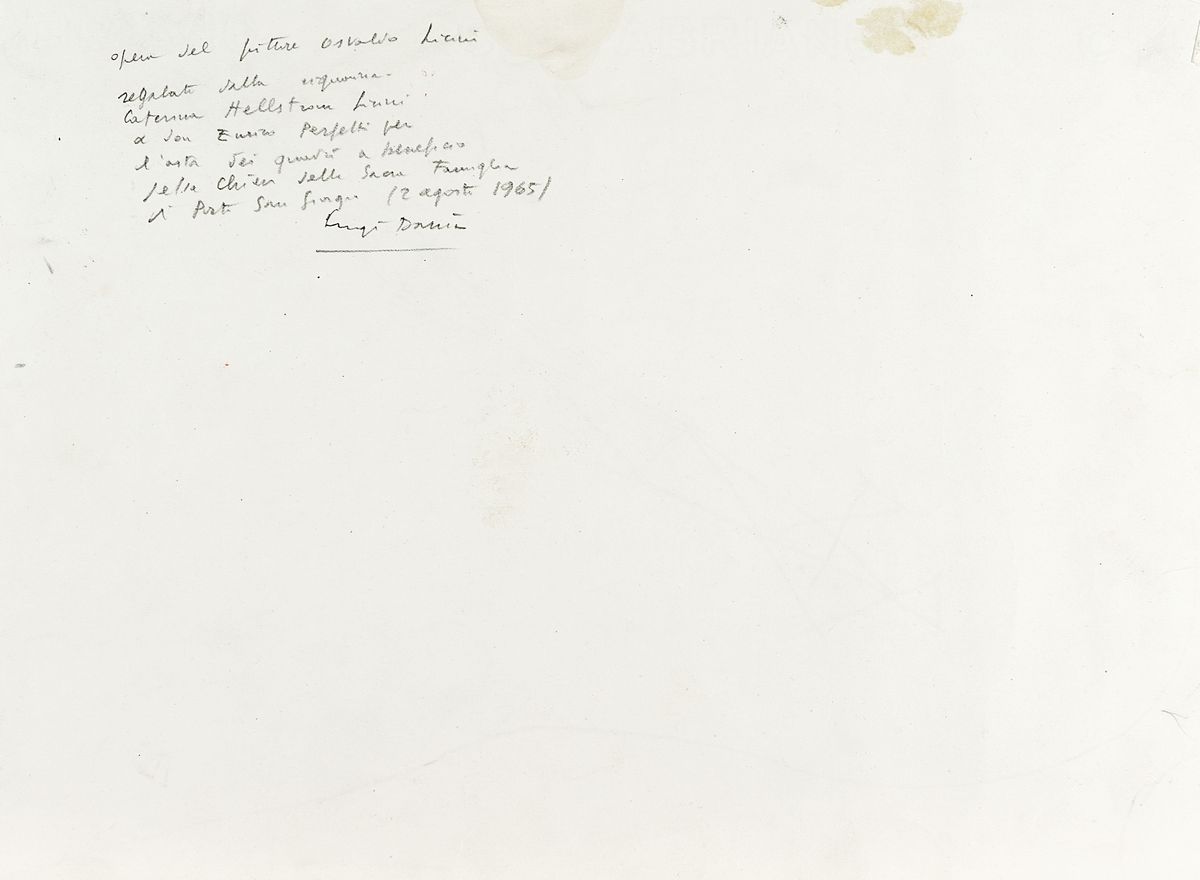 opera del pittore Osvaldo Licini
regalata dalla signora
Caterina Hellstrom Licini
a don Enrico Perfetti per
l'asta dei quadri a beneficio
della Chiesa della Sacra Famiglia
di Porto San Giorgio (2 agosto 1965)
Luigi Dania